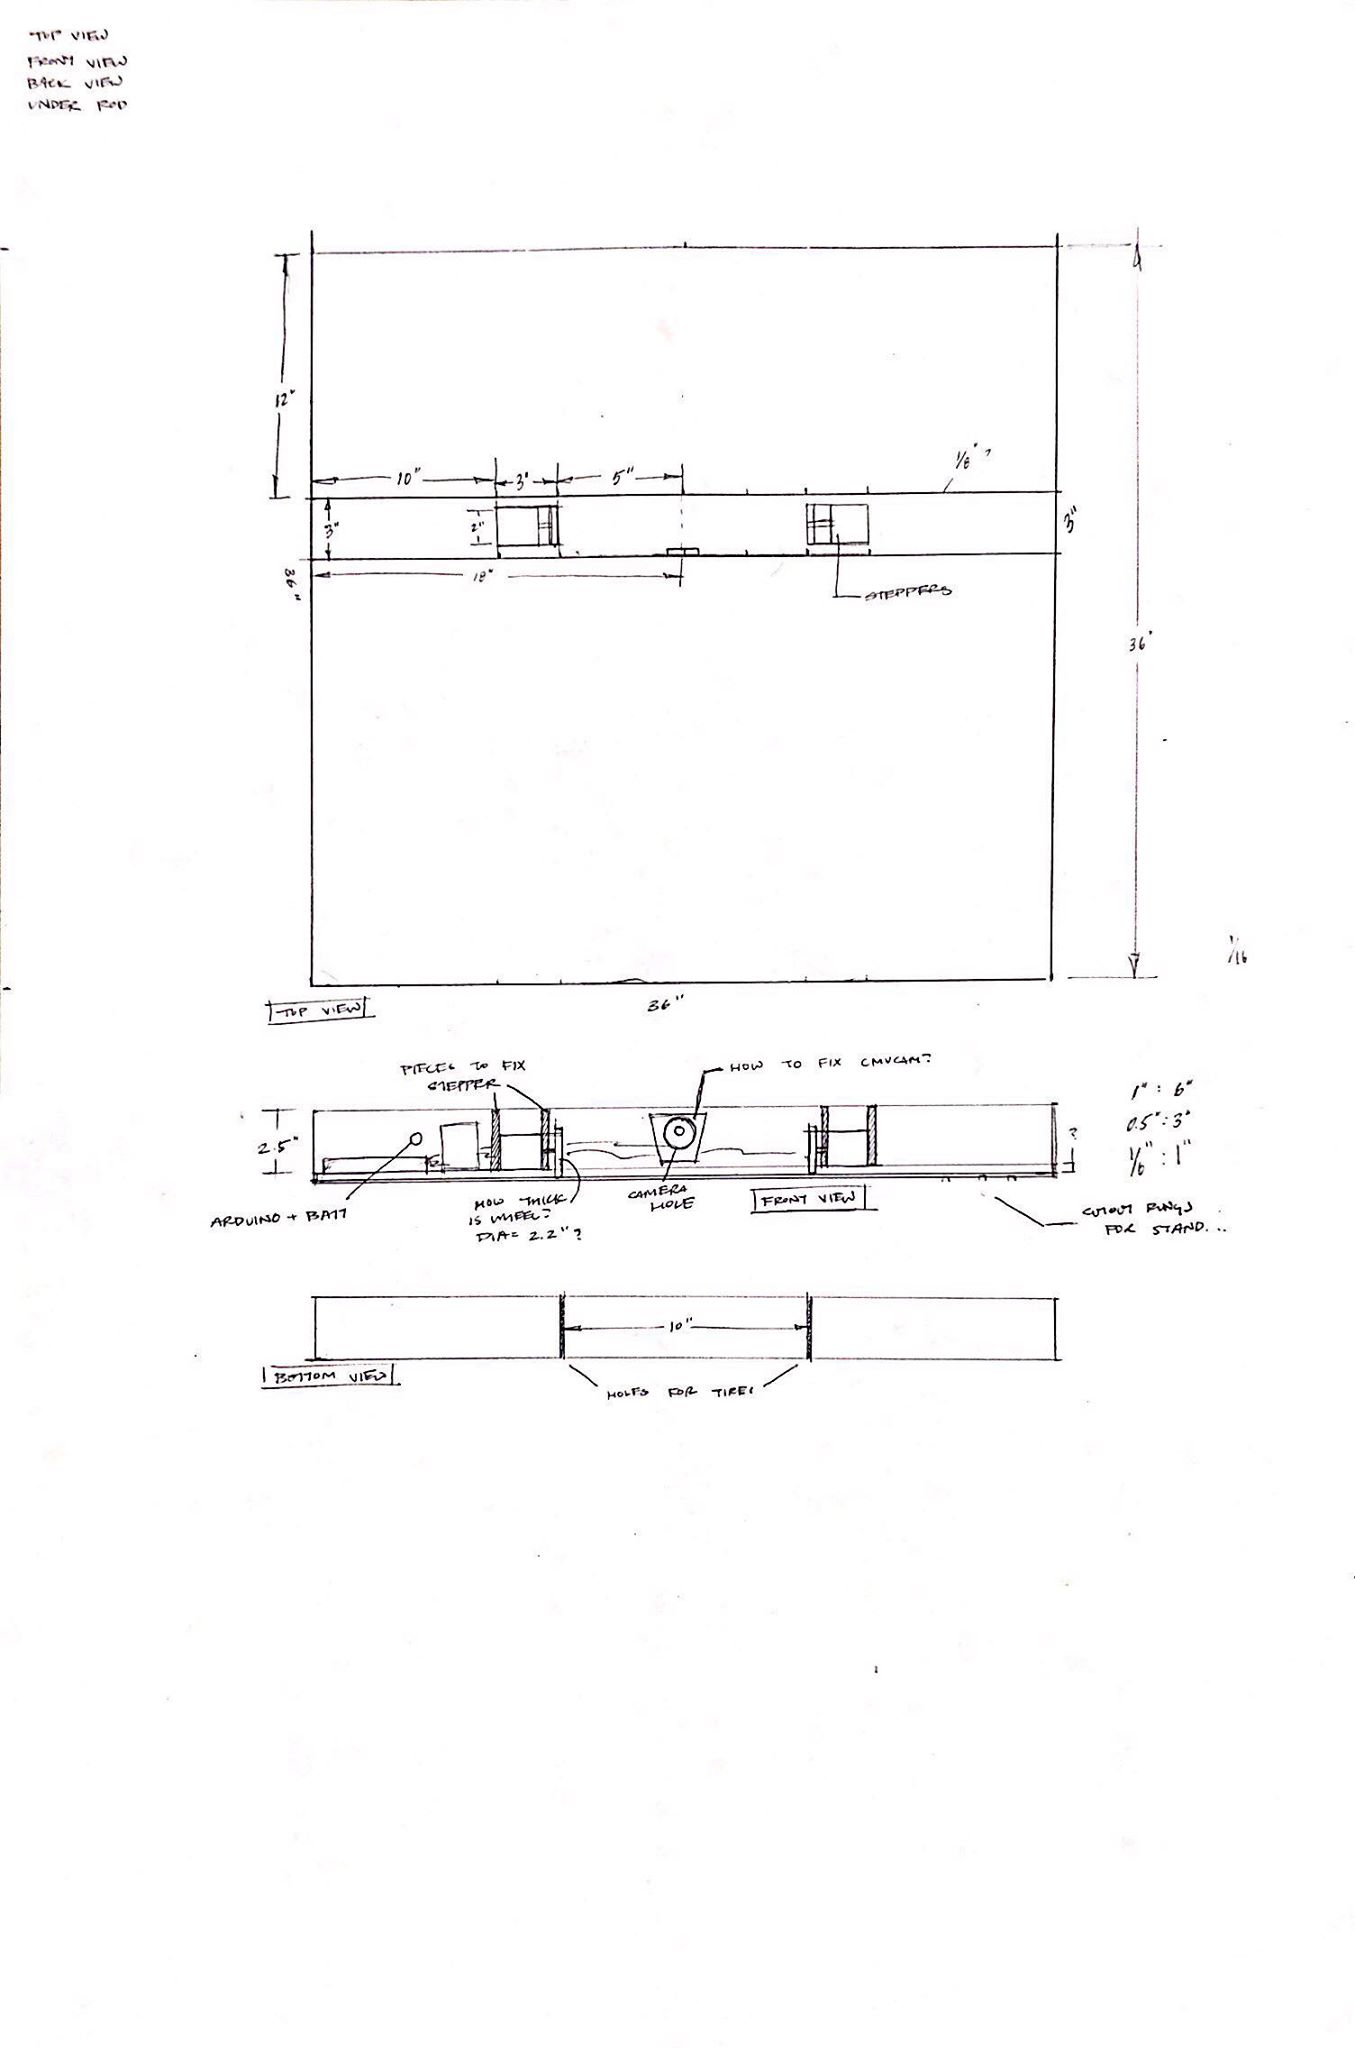 TOP VIEW
FRONT VIEW
BACK VIEW
UNDER ROD
12"
10"
3"
5"
1/8" ?
3"
2"
3"
36"
18"
STEPPERS
36"
1/16
TOP VIEW
36"
PIECES TO FIX
STEPPER
HOW TO FIX CMUCAM?
1" : 6"
0.5" : 3"
1/6" : 1"
2.5"
?
ARDUINO + BATT
HOW THICK
IS WHEEL?
DIA= 2.2"?
CAMERA
HOLE
FRONT VIEW
CUTOUT RINGS
FOR STAND...
10"
BOTTOM VIEW
HOLES FOR TIRES